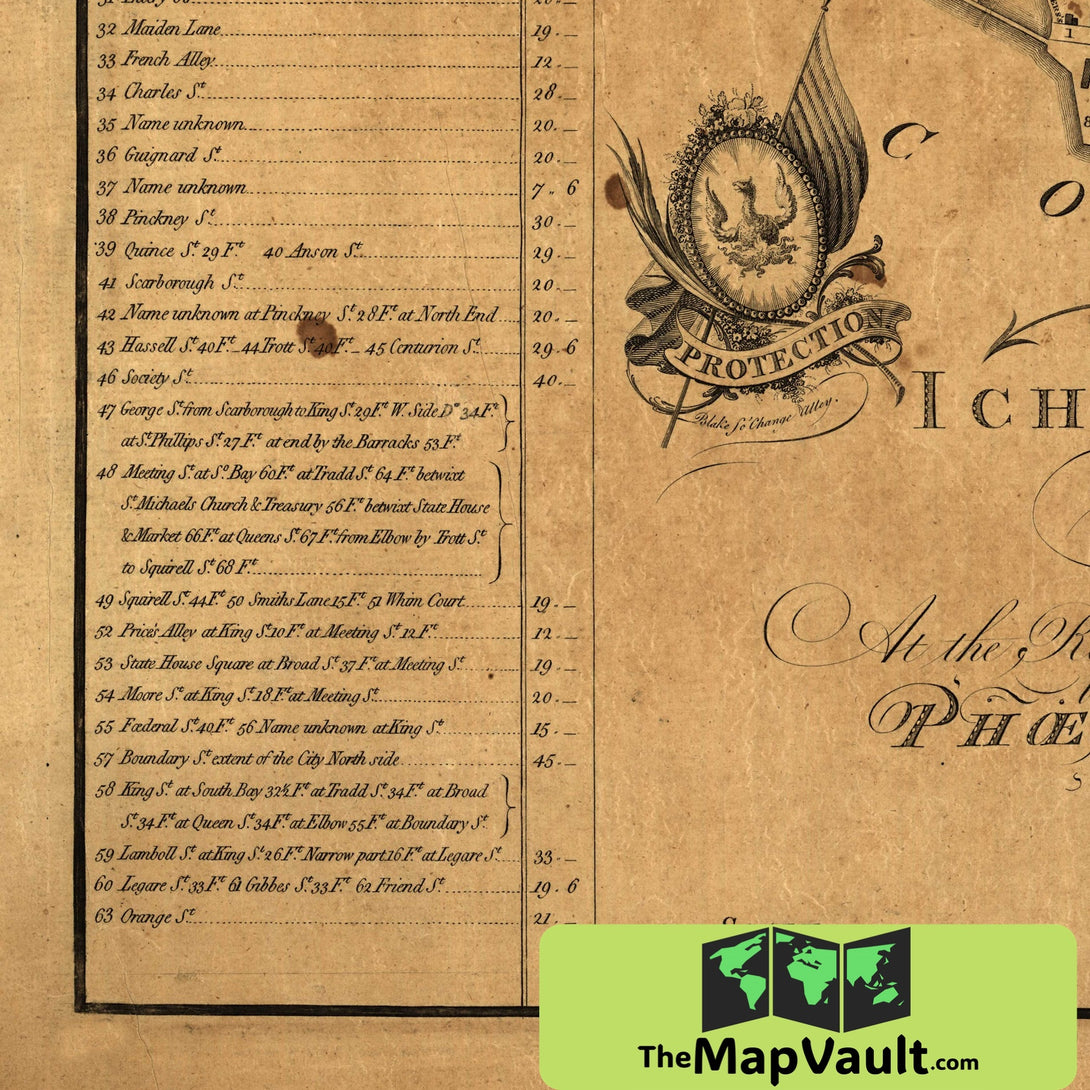 32 Maiden Lane 19.
33 French Alley 12.
34 Charles St. 28.
35 Name unknown 20.
36 Guignard St. 20.
37 Name unknown 7. 6
38 Pinckney St. 30.
39 Quince St. 29 Ft. 40 Anson St. 29.
41 Scarborough St. 20.
42 Name unknown at Pinckney St. 28 Ft. at North End 20.
43 Hassell St. 40 Ft. 44 Trott St. 40 Ft. 45 Centurion St. 29. 6
46 Society St. 40.
47 George St. from Scarborough to King St. 29 Ft. W. Side Do. 34 Ft.
at St. Phillips St. 27 Ft. at end by the Barracks 53 Ft.
48 Meeting St. at So. Bay 60 Ft. at Tradd St. 64 Ft. betwixt
St. Michaels Church & Treasury 56 Ft. betwixt State House
& Market 66 Ft. at Queens St. 67 Ft. from Elbow by Trott St.
to Squirell St. 68 Ft.
49 Squirell St. 44 Ft. 50 Smiths Lane 15 Ft. 51 Whim Court 19.
52 Price's Alley at King St. 10 Ft. at Meeting St. 12 Ft. 12.
53 State House Square at Broad St. 37 Ft. at Meeting St. 19.
54 Moore St. at King St. 18 Ft. at Meeting St. 20.
55 Fœderal St. 40 Ft. 56 Name unknown at King St. 15.
57 Boundary St. extent of the City North side 45.
58 King St. at South Bay 32½ Ft. at Tradd St. 34 Ft. at Broad
St. 34 Ft. at Queen St. 34 Ft. at Elbow 55 Ft. at Boundary St.
59 Lamboll St. at King St. 26 Ft. Narrow part 16 Ft. at Legare St. 33.
60 Legare St. 33 Ft. 61 Gibbes St. 33 Ft. 62 Friend St. 19. 6
63 Orange St. 21.
PROTECTION
Blake Sc. 'Change Alley.
C O
ICH
At the R
PHŒ
TheMapVault.com